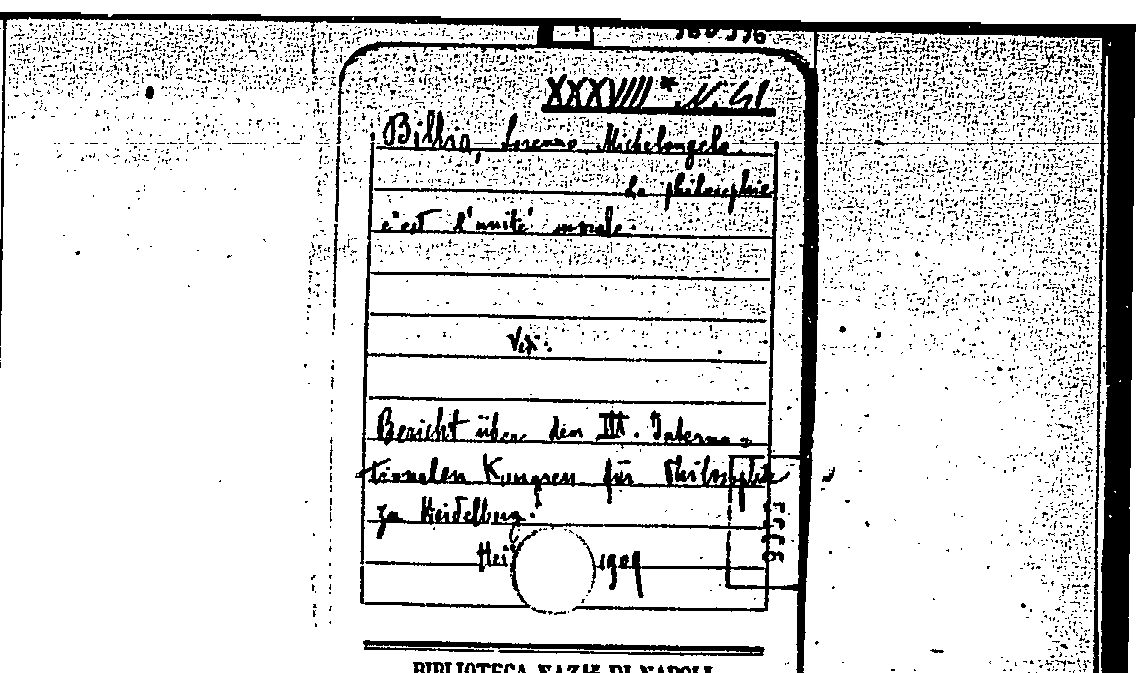 XXXVIII * N. 41
Billia, Lorenzo Michelangelo.
La philosophie
c'est l'unité morale.
Ved.
Bericht über den III. Interna-
tionalen Kongress für Philosophie
zu Heidelberg.
Hei 1909
BIBLIOTECA NAZ. DI NAPOLI